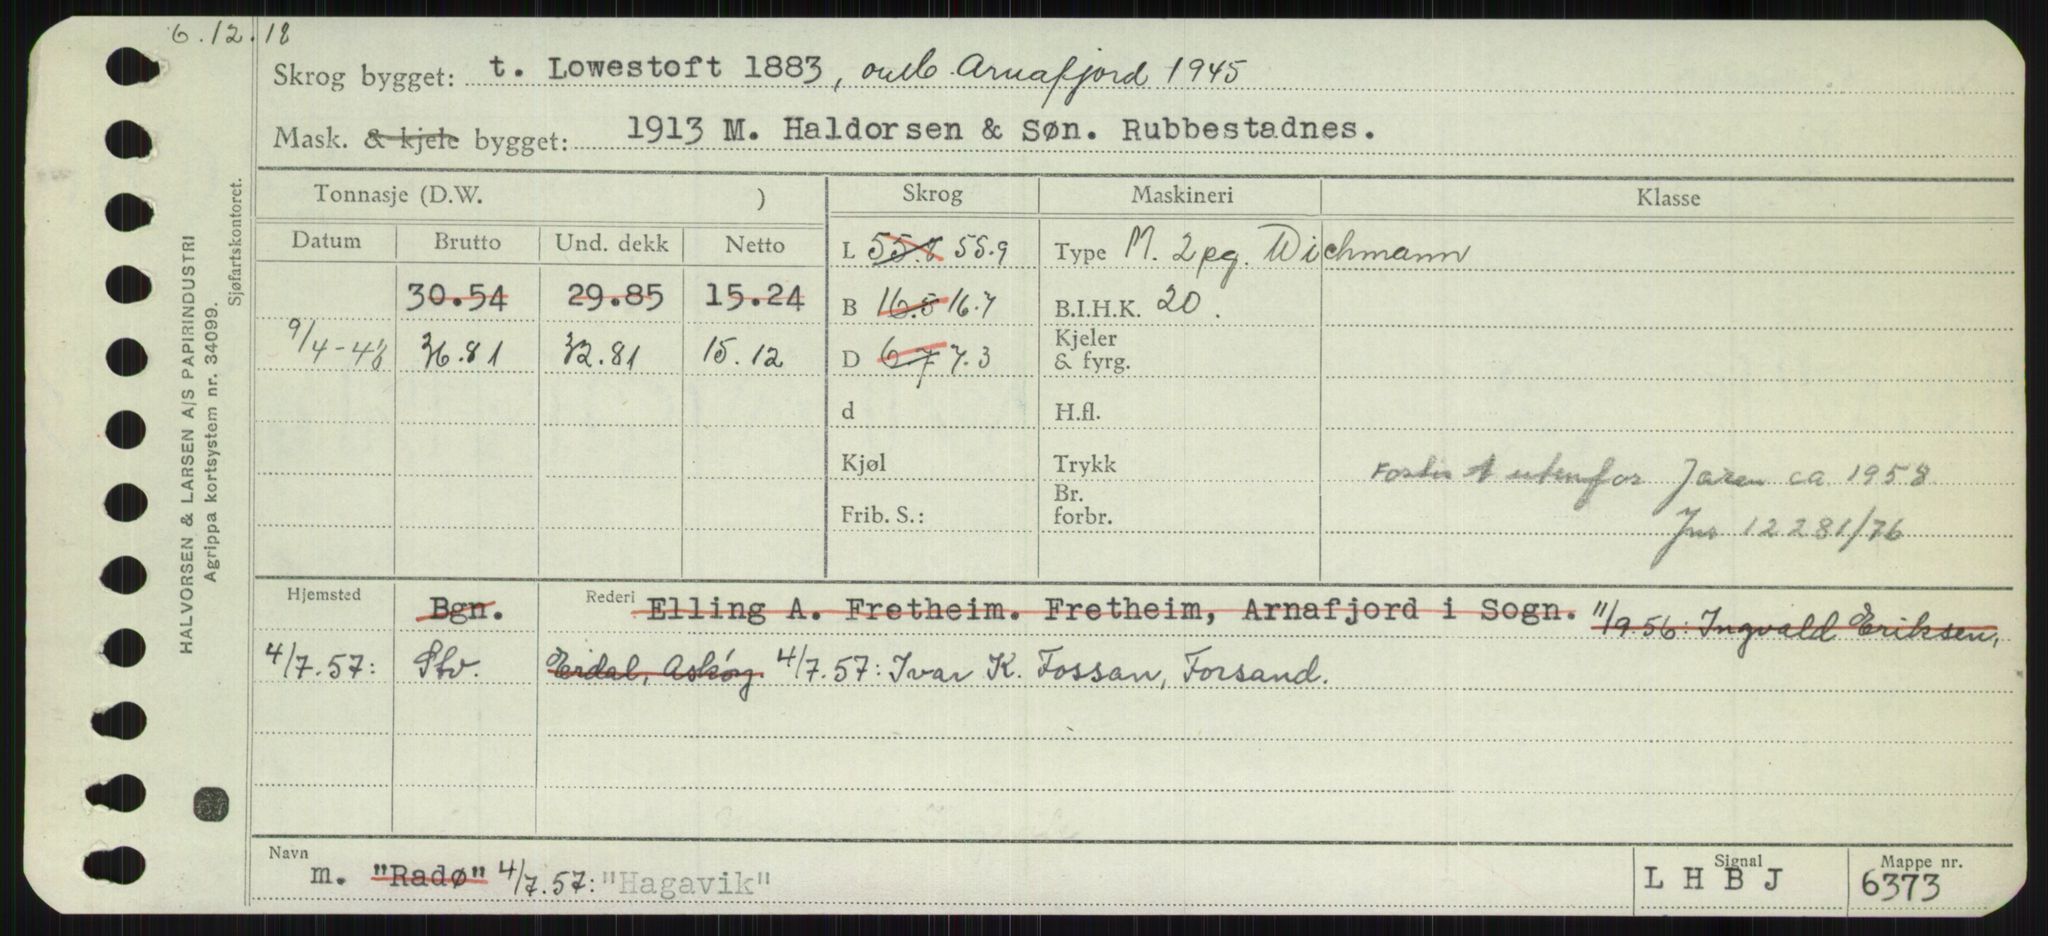 6.12.18
Skrog bygget: t. Lowestoft 1883, omb. Arnafjord 1945
Mask. & kjele bygget: 1913 M. Haldorsen & Søn. Rubbestadnes.
Tonnasje (D.W. ) Skrog Maskineri Klasse
Datum Brutto Und. dekk Netto
L 55.8 55.9 Type M. 2pg. Wichmann
30.54 29.85 15.24 B 16.5 16.7 B.I.H.K. 20.
9/4-48 36.81 32.81 15.12 D 6.7 7.3 Kjeler & fyrg.
d H.fl.
Kjøl Trykk
Forlist utenfor Jæren ca 1958
Frib. S.: Br. forbr.
Jnr 12281/76
Hjemsted Bgn. Rederi Elling A. Fretheim. Fretheim, Arnafjord i Sogn. 11/9.56: Ingvald Eriksen,
4/7.57: Stv. Erdal, Askøy. 4/7.57: Ivar K. Fossan, Forsand.
Navn m. "Radø" 4/7.57: "Hagavik" Signal L H B J Mappe nr. 6373
HALVORSEN & LARSEN A/S PAPIRINDUSTRI
Agrippa kortsystem nr. 34099.
Sjøfartskontoret.